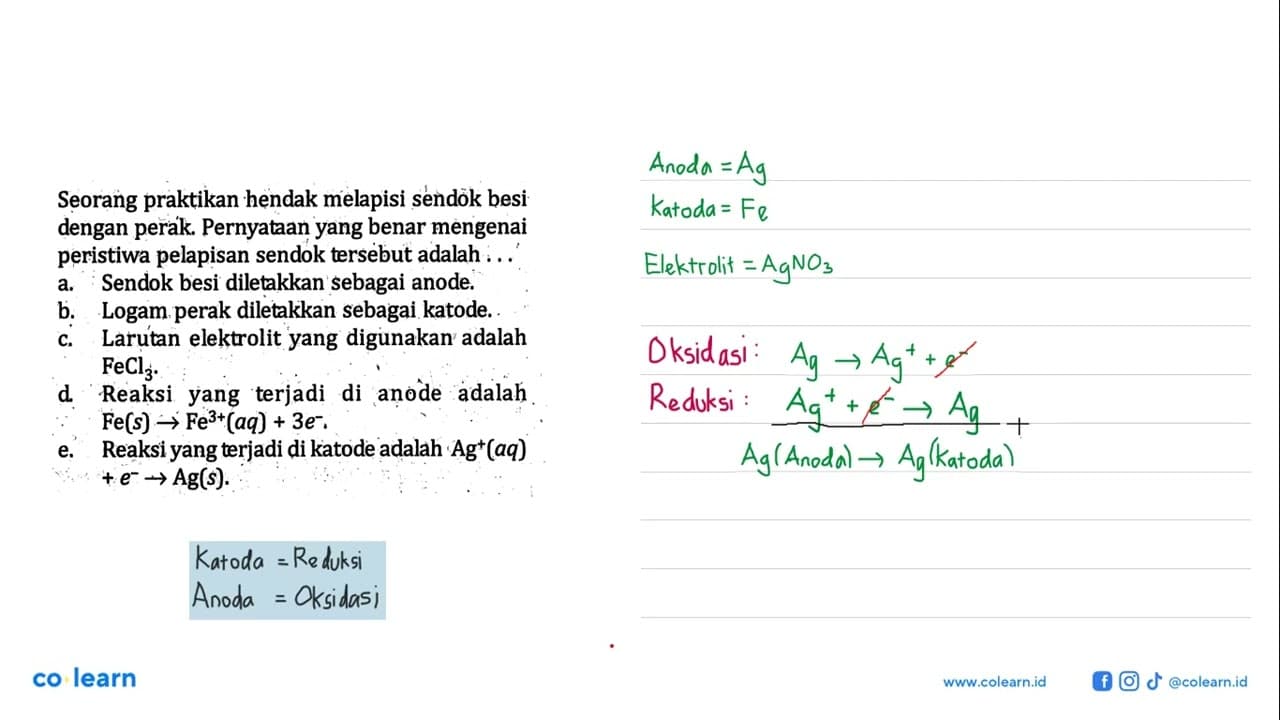 Seorang praktikan hendak melapisi sendok besi
dengan perak. Pernyataan yang benar mengenai
peristiwa pelapisan sendok tersebut adalah . . .
a. Sendok besi diletakkan sebagai anode.
b. Logam perak diletakkan sebagai katode.
c. Larutan elektrolit yang digunakan adalah
FeCl₃.
d. Reaksi yang terjadi di anode adalah
Fe(s) → Fe³⁺(aq) + 3e⁻.
e. Reaksi yang terjadi di katode adalah Ag⁺(aq)
+ e⁻ → Ag(s).
Katoda = Reduksi
Anoda = Oksidasi
Anoda = Ag
Katoda = Fe
Elektrolit = AgNO₃
Oksidasi: Ag → Ag⁺ + e⁻
Reduksi: Ag⁺ + e⁻ → Ag
+
Ag(Anoda) → Ag(Katoda)
co learn
www.colearn.id
@colearn.id